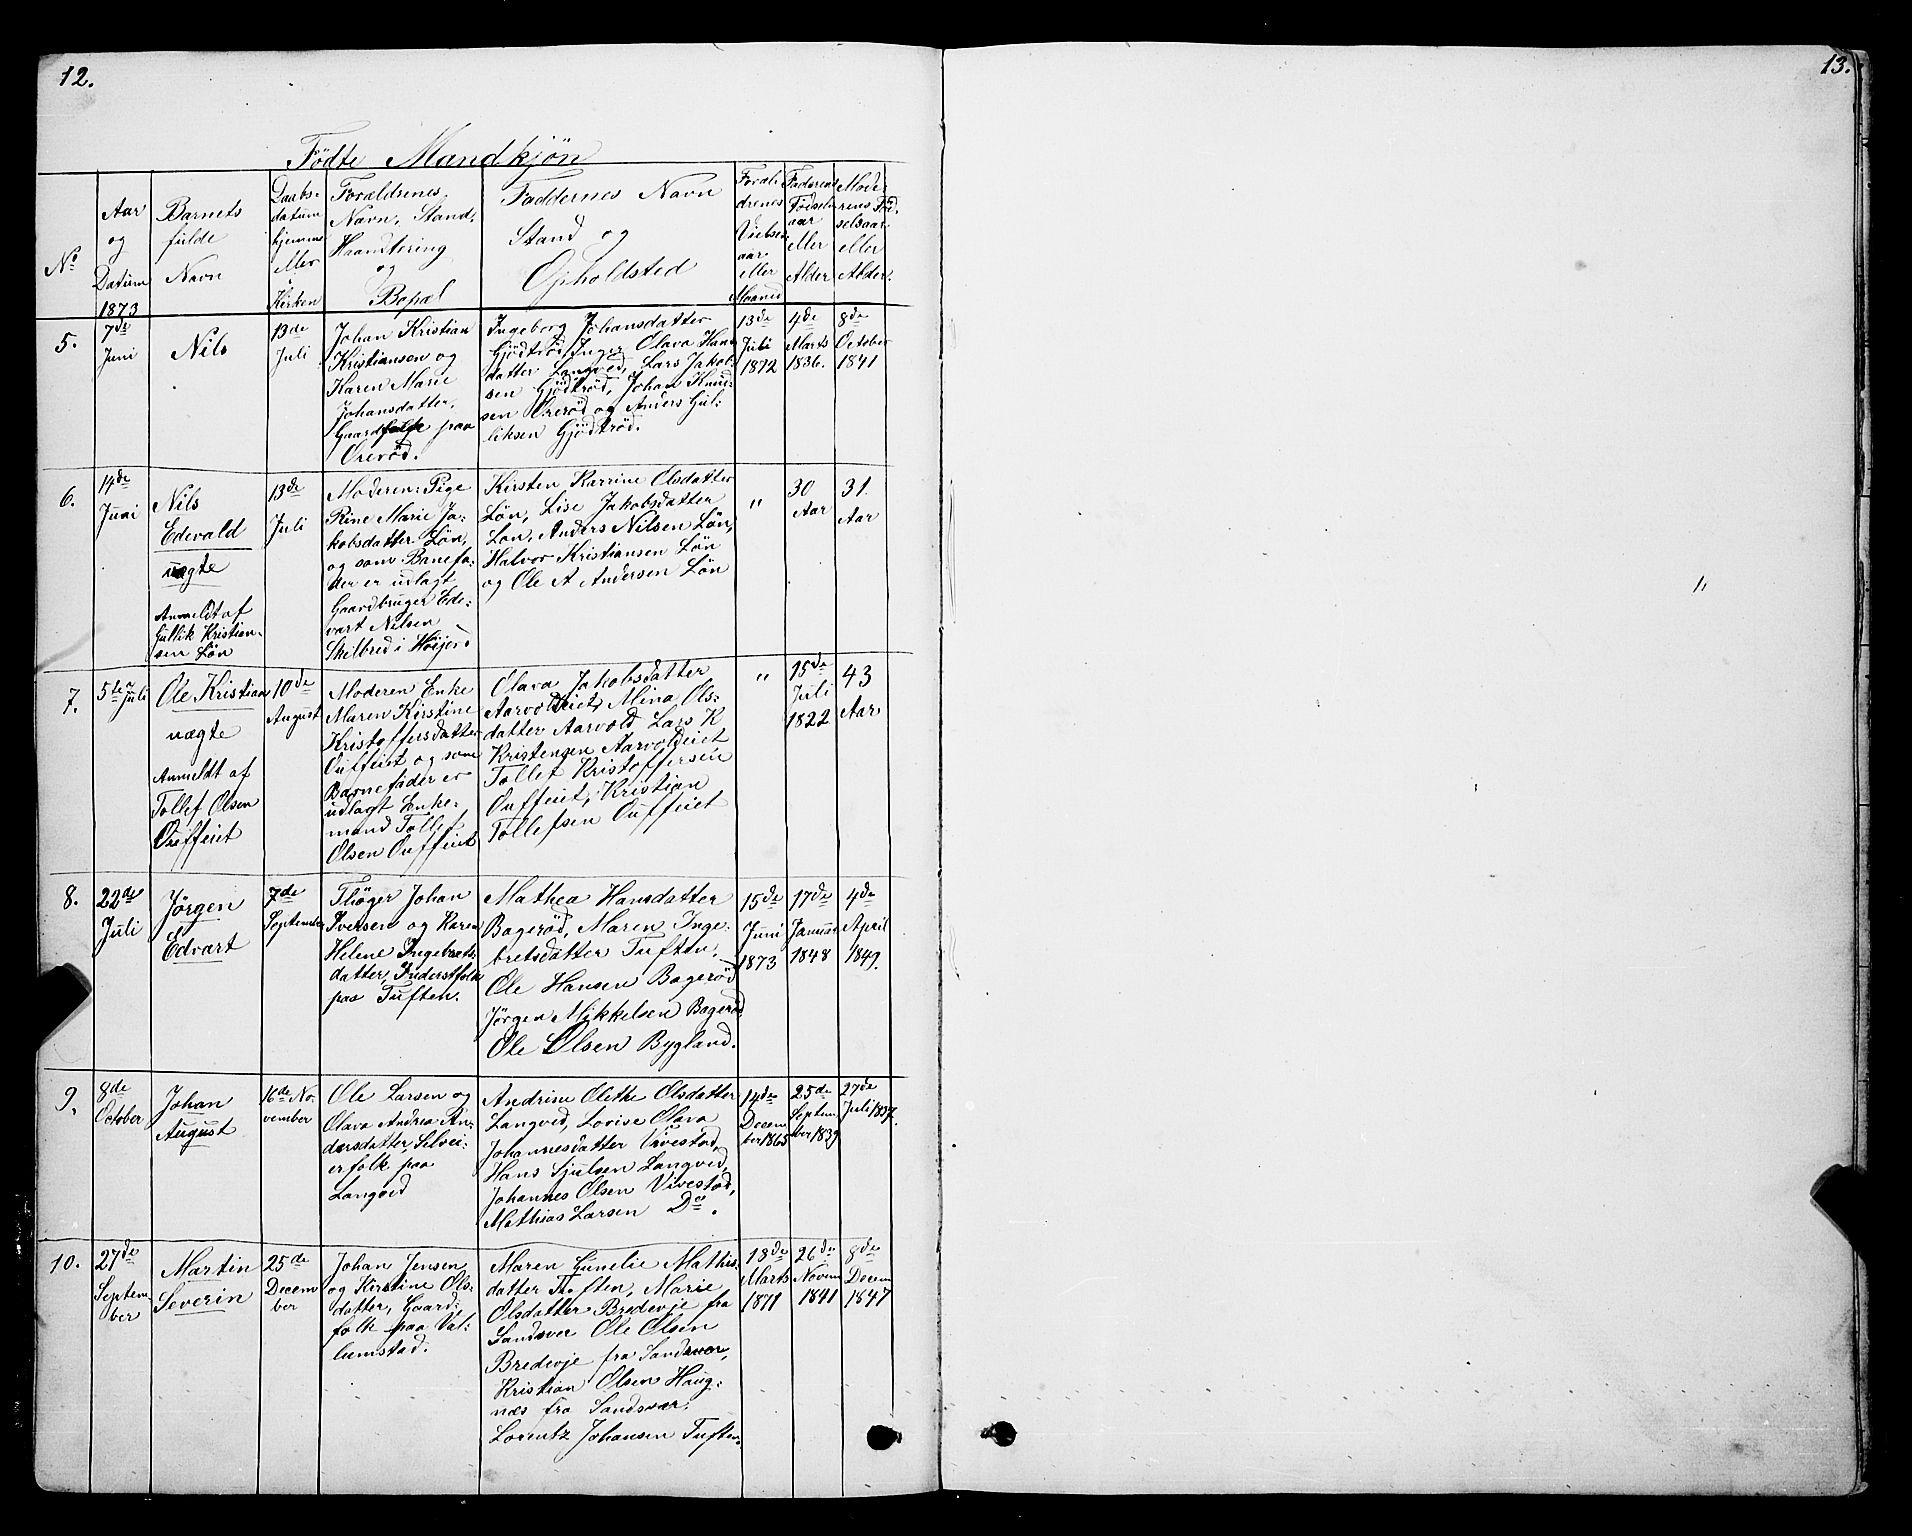 12.
13.
Födte Mandkjön
No
Aar
og
Datum
1873
Barnets
fulde
Navn
Daabs-
datum
hjemme
eller
i
Kirken
Forældrenes
Navn, Stand,
Haandtering
og
Bopæl
Faddernes Navn
Stand og
Opholdsted
Foræl-
drenes
Vielses
aar
eller
Maaned
Faderens
Födsels
aar
eller
Alder
Mode-
rens Föd-
selsaar
eller
Alder.
5.
7de
Juni
Nils
13de
Juli
Johan Kristian
Kristiansen og
Karen Marie
Johansdatter,
Gaardfolk paa
Ørerød.
Ingeborg Johansdatter
Gjödtröd, Inger Olava Hans
datter Langved, Lars Jakob-
sen Gjödtröd, Johan Knud-
sen Ørerød og Anders Gul-
liksen Gjödtröd.
13de
Juli
1872
4de
Marts
1836.
8de
October
1841
6.
14de
Juni
Nils
Edevald
uægte
Anmeldt af
Gullik Kristian-
sen Løn
13de
Juli
Moderen: Pige
Rine Marie Ja-
kobsdatter Løn,
og som Banefa-
der er udlagt
Gaardbruger Ede-
vart Nilsen
Skilbred i Höijord
Kirsten Karrine Olsdatter
Løn, Lise Jakobsdatter
Løn, Anders Nilsen Løn,
Halvor Kristiansen Løn
og Ole A Andersen Løn
"
30
Aar
31.
Aar
7.
5te Juli
Ole Kristian
uægte
Anmeldt af
Tollef Olsen
Ouffeiet
10de
August
Moderen Enke
Maren Kirstine
Kristoffersdatter
Ouffeiet og som
Barnefader er
udlagt Enke-
mand Tollef
Olsen Ouffeiet
Olava Jakobsdatter
Aarvoldeiet, Mina Ols-
datter Aarvold Lars K
Kristensen Aarvoldeiet
Tollef Kristoffersen
Ouffeiet, Kristian
Tollefsen Ouffeiet
"
15de
Juli
1822
43
Aar
8.
22de
Juli
Jörgen
Edvart
7de
September
Thöger Johan
Iversen og Karen
Helene Ingebrets-
datter, Inderstfolk
paa Tuften.
Mathea Hansdatter
Bogeröd, Maren Inge-
bretsdatter Tuften,
Ole Hansen Bogeröd
Jörgen Mikkelsen Bogeröd
Ole Olsen Bygland.
15de
Juni
1873
17de
Januar
1848
4de
April
1849.
9.
8de
October
Johan
August
16de No-
vember
Ole Larsen og
Olava Andrea An-
dersdatter, Selvei-
erfolk paa
Langved
Andrine Olethe Olsdatter
Langvid, Lovise Olava
Johannesdatter Vivestad,
Hans Sjulsen Langvid,
Johannes Olsen Vivestad,
Mathias Larsen Do.
14de
Decem
ber 1865
25de
Septem
ber 1839
27de
Juli 1837.
10.
27de
Septem
ber
Martin
Severin
25de
Decem
ber
Johan Jensen
og Kirstine Ols-
datter, Gaard-
folk paa Val-
lumstad.
Maren Gunelie Mathis
datter Tuften, Marie
Olsdatter Bredevje fra
Sandsver Ole Olsen
Bredevje fra Sandsver,
Kristian Olsen Haug-
næs fra Sandsvær,
Lorentz Johansen Tuften.
18de
Marts
1871
26de
Novem
1841
8de
Decem
1847